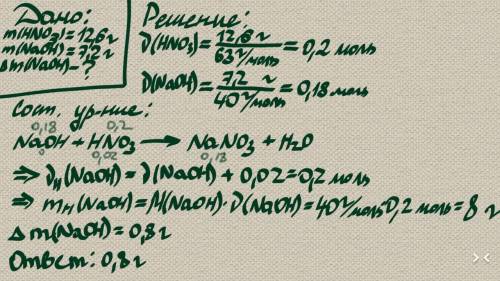 Дано:
m(HNO₃)=12,6 г
m(NaOH)=7,2 г
Δm(NaOH)-?
Решение:
ν(HNO₃)=12,6 г/63 г/моль=0,2 моль
ν(NaOH)=7,2 г/40 г/моль=0,18 моль
Сост. ур-ние:
0,18 0,2
NaOH + HNO₃ → NaNO₃ + H₂O
0 0,02 0,18
⇒ νн(NaOH)=ν(NaOH)+0,02=0,2 моль
⇒ mн(NaOH)=M(NaOH)·ν(NaOH)=40 г/моль·0,2 моль=8 г
Δm(NaOH)=0,8 г
Ответ: 0,8 г